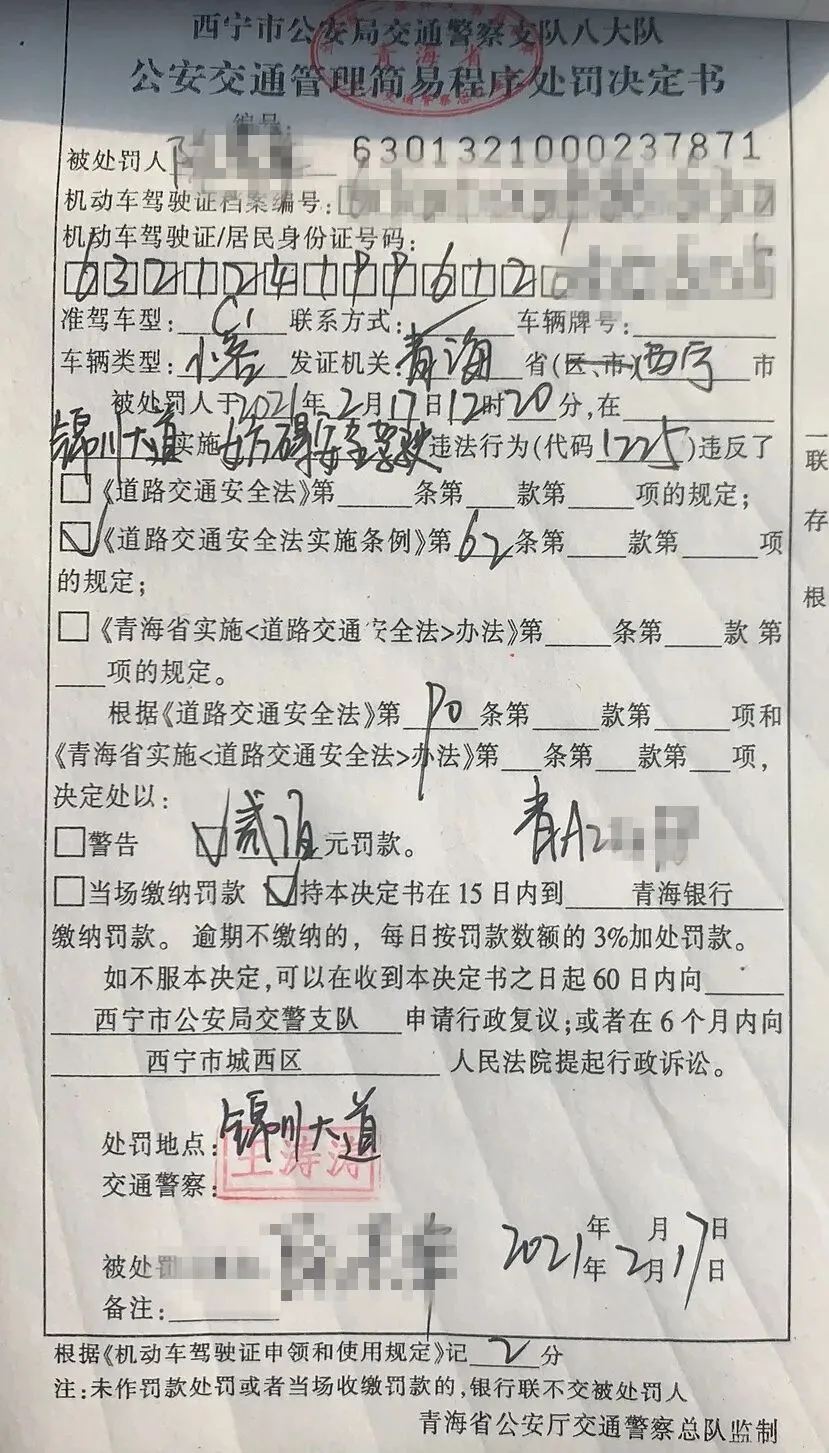 西宁市公安局交通警察支队八大队
公安交通管理简易程序处罚决定书
青海省
编号:
6301321000237871
被处罚人
机动车驾驶证档案编号:
机动车驾驶证/居民身份证号码:
6321241996120
准驾车型: C1 联系方式: 车辆牌号:
车辆类型: 小客 发证机关: 青海 省(区、市)西宁 市
被处罚人于2021年2月17日12时20分,在
锦川大道实施妨碍安全驾驶违法行为(代码1225)违反了
《道路交通安全法》第 条第 款第 项的规定;
《道路交通安全法实施条例》第62条第 款第 项
的规定;
《青海省实施<道路交通安全法>办法》第 条第 款 第
项的规定。
根据《道路交通安全法》第90条第 款第 项和
《青海省实施<道路交通安全法>办法》第 条第 款第 项,
决定处以:
警告 贰佰元罚款。 青A2
当场缴纳罚款 持本决定书在15日内到 青海银行
缴纳罚款。逾期不缴纳的,每日按罚款数额的3%加处罚款。
如不服本决定,可以在收到本决定书之日起60日内向
西宁市公安局交警支队 申请行政复议;或者在6个月内向
西宁市城西区 人民法院提起行政诉讼。
处罚地点: 锦川大道
王涛涛
交通警察:
年 月 日
被处罚 2021年2月17日
备注:
根据《机动车驾驶证申领和使用规定》记2分
注:未作罚款处罚或者当场收缴罚款的,银行联不交被处罚人
青海省公安厅交通警察总队监制
一联存根